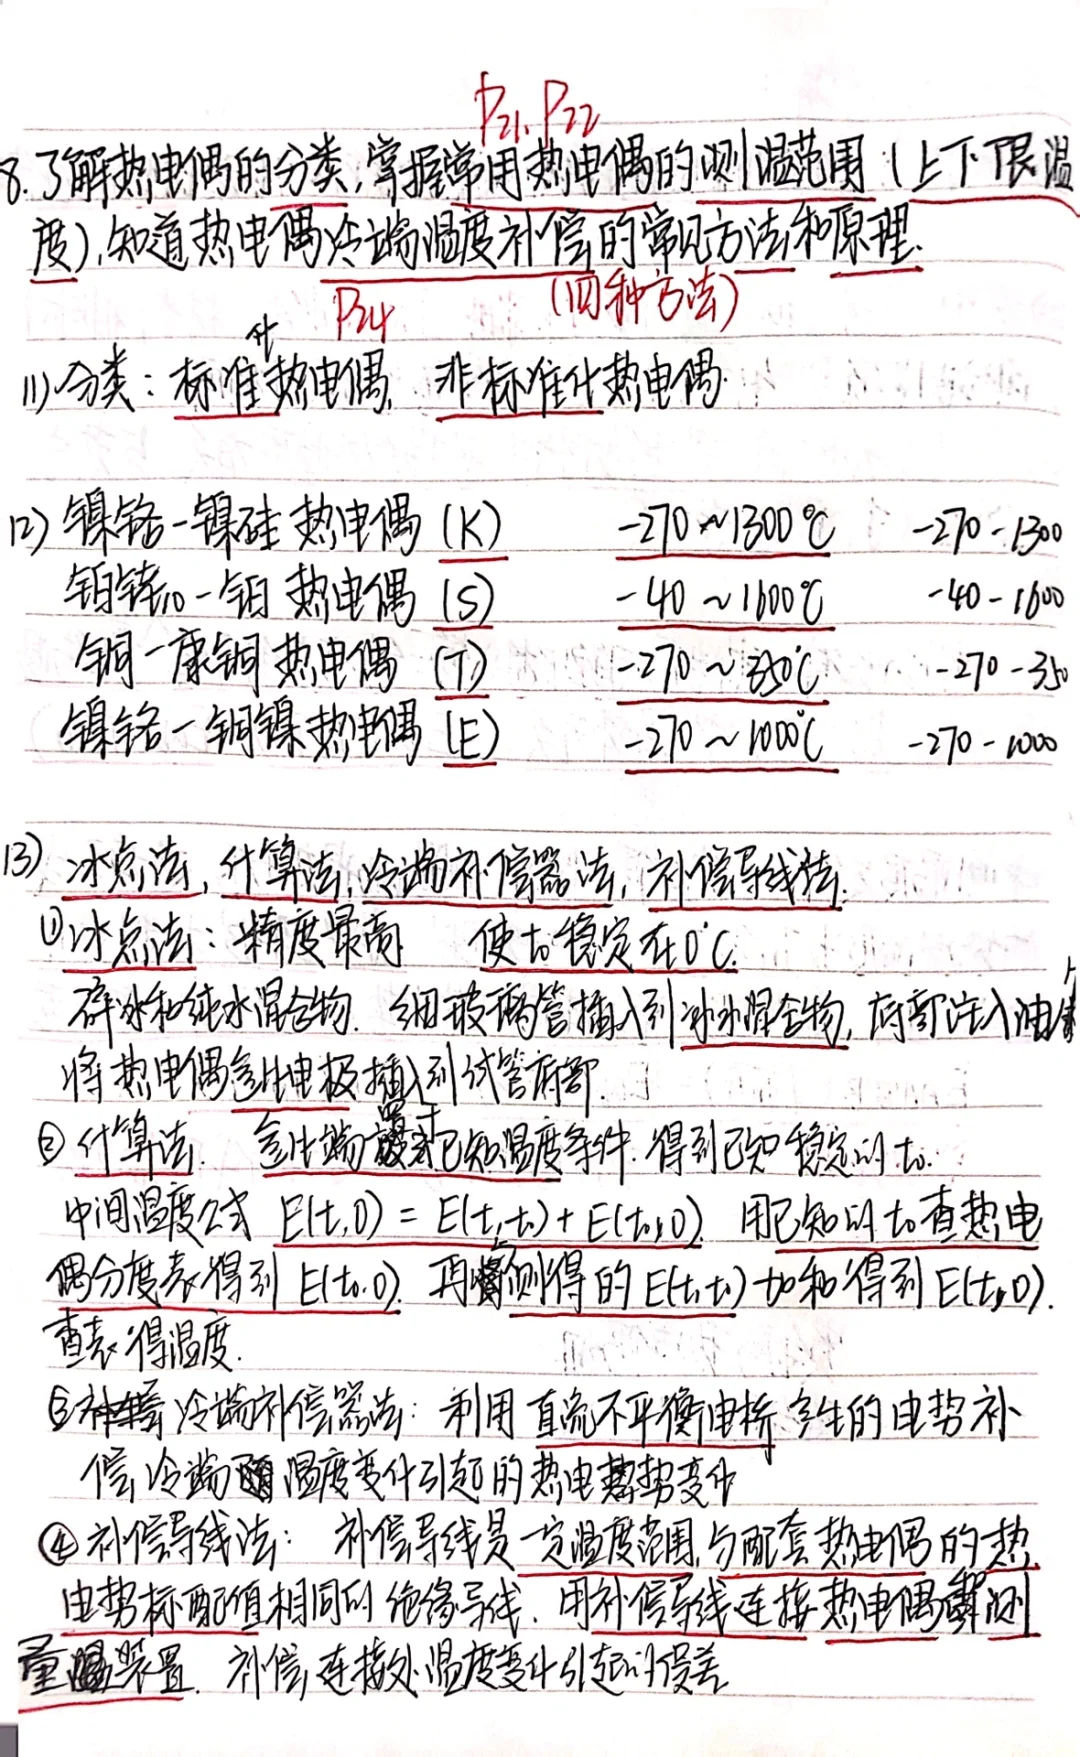 P21、P22
8.了解热电偶的分类,掌握常用热电偶的测温范围(上下限温
度),知道热电偶冷端温度补偿的常见方法和原理.
P24 (四种方法)
(1)分类:标准化热电偶, 非标准化热电偶.
(2) 镍铬-镍硅热电偶 (K) -270~1300℃ -270-1300
铂铑10-铂热电偶 (S) -40~1600℃ -40-1600
铜-康铜热电偶 (T) -270~350℃ -270-350
镍铬-铜镍热电偶 (E) -270~1000℃ -270-1000
(3) 冰点法,计算法,冷端补偿器法,补偿导线法.
①冰点法:精度最高 使t₀稳定在0℃.
碎冰和纯水混合物. 细玻璃管插入到冰水混合物,底部注入油
将热电偶参比电极插入到试管底部.
②计算法. 参比端置于已知温度条件.得到已知稳定的t₀.
中间温度公式 E(t,0)=E(t,t₀)+E(t₀,0). 用已知的t₀查热电
偶分度表得到E(t₀.0). 再将测得的E(t,t₀)加和得到E(t,0).
查表得温度.
③冷端补偿器法:利用直流不平衡电桥产生的电势补
偿冷端温度变化引起的热电势变化
④补偿导线法: 补偿导线是一定温度范围,与配套热电偶的热
电势标称值相同的绝缘导线.用补偿导线连接热电偶测
量装置.补偿连接处温度变化引起的误差